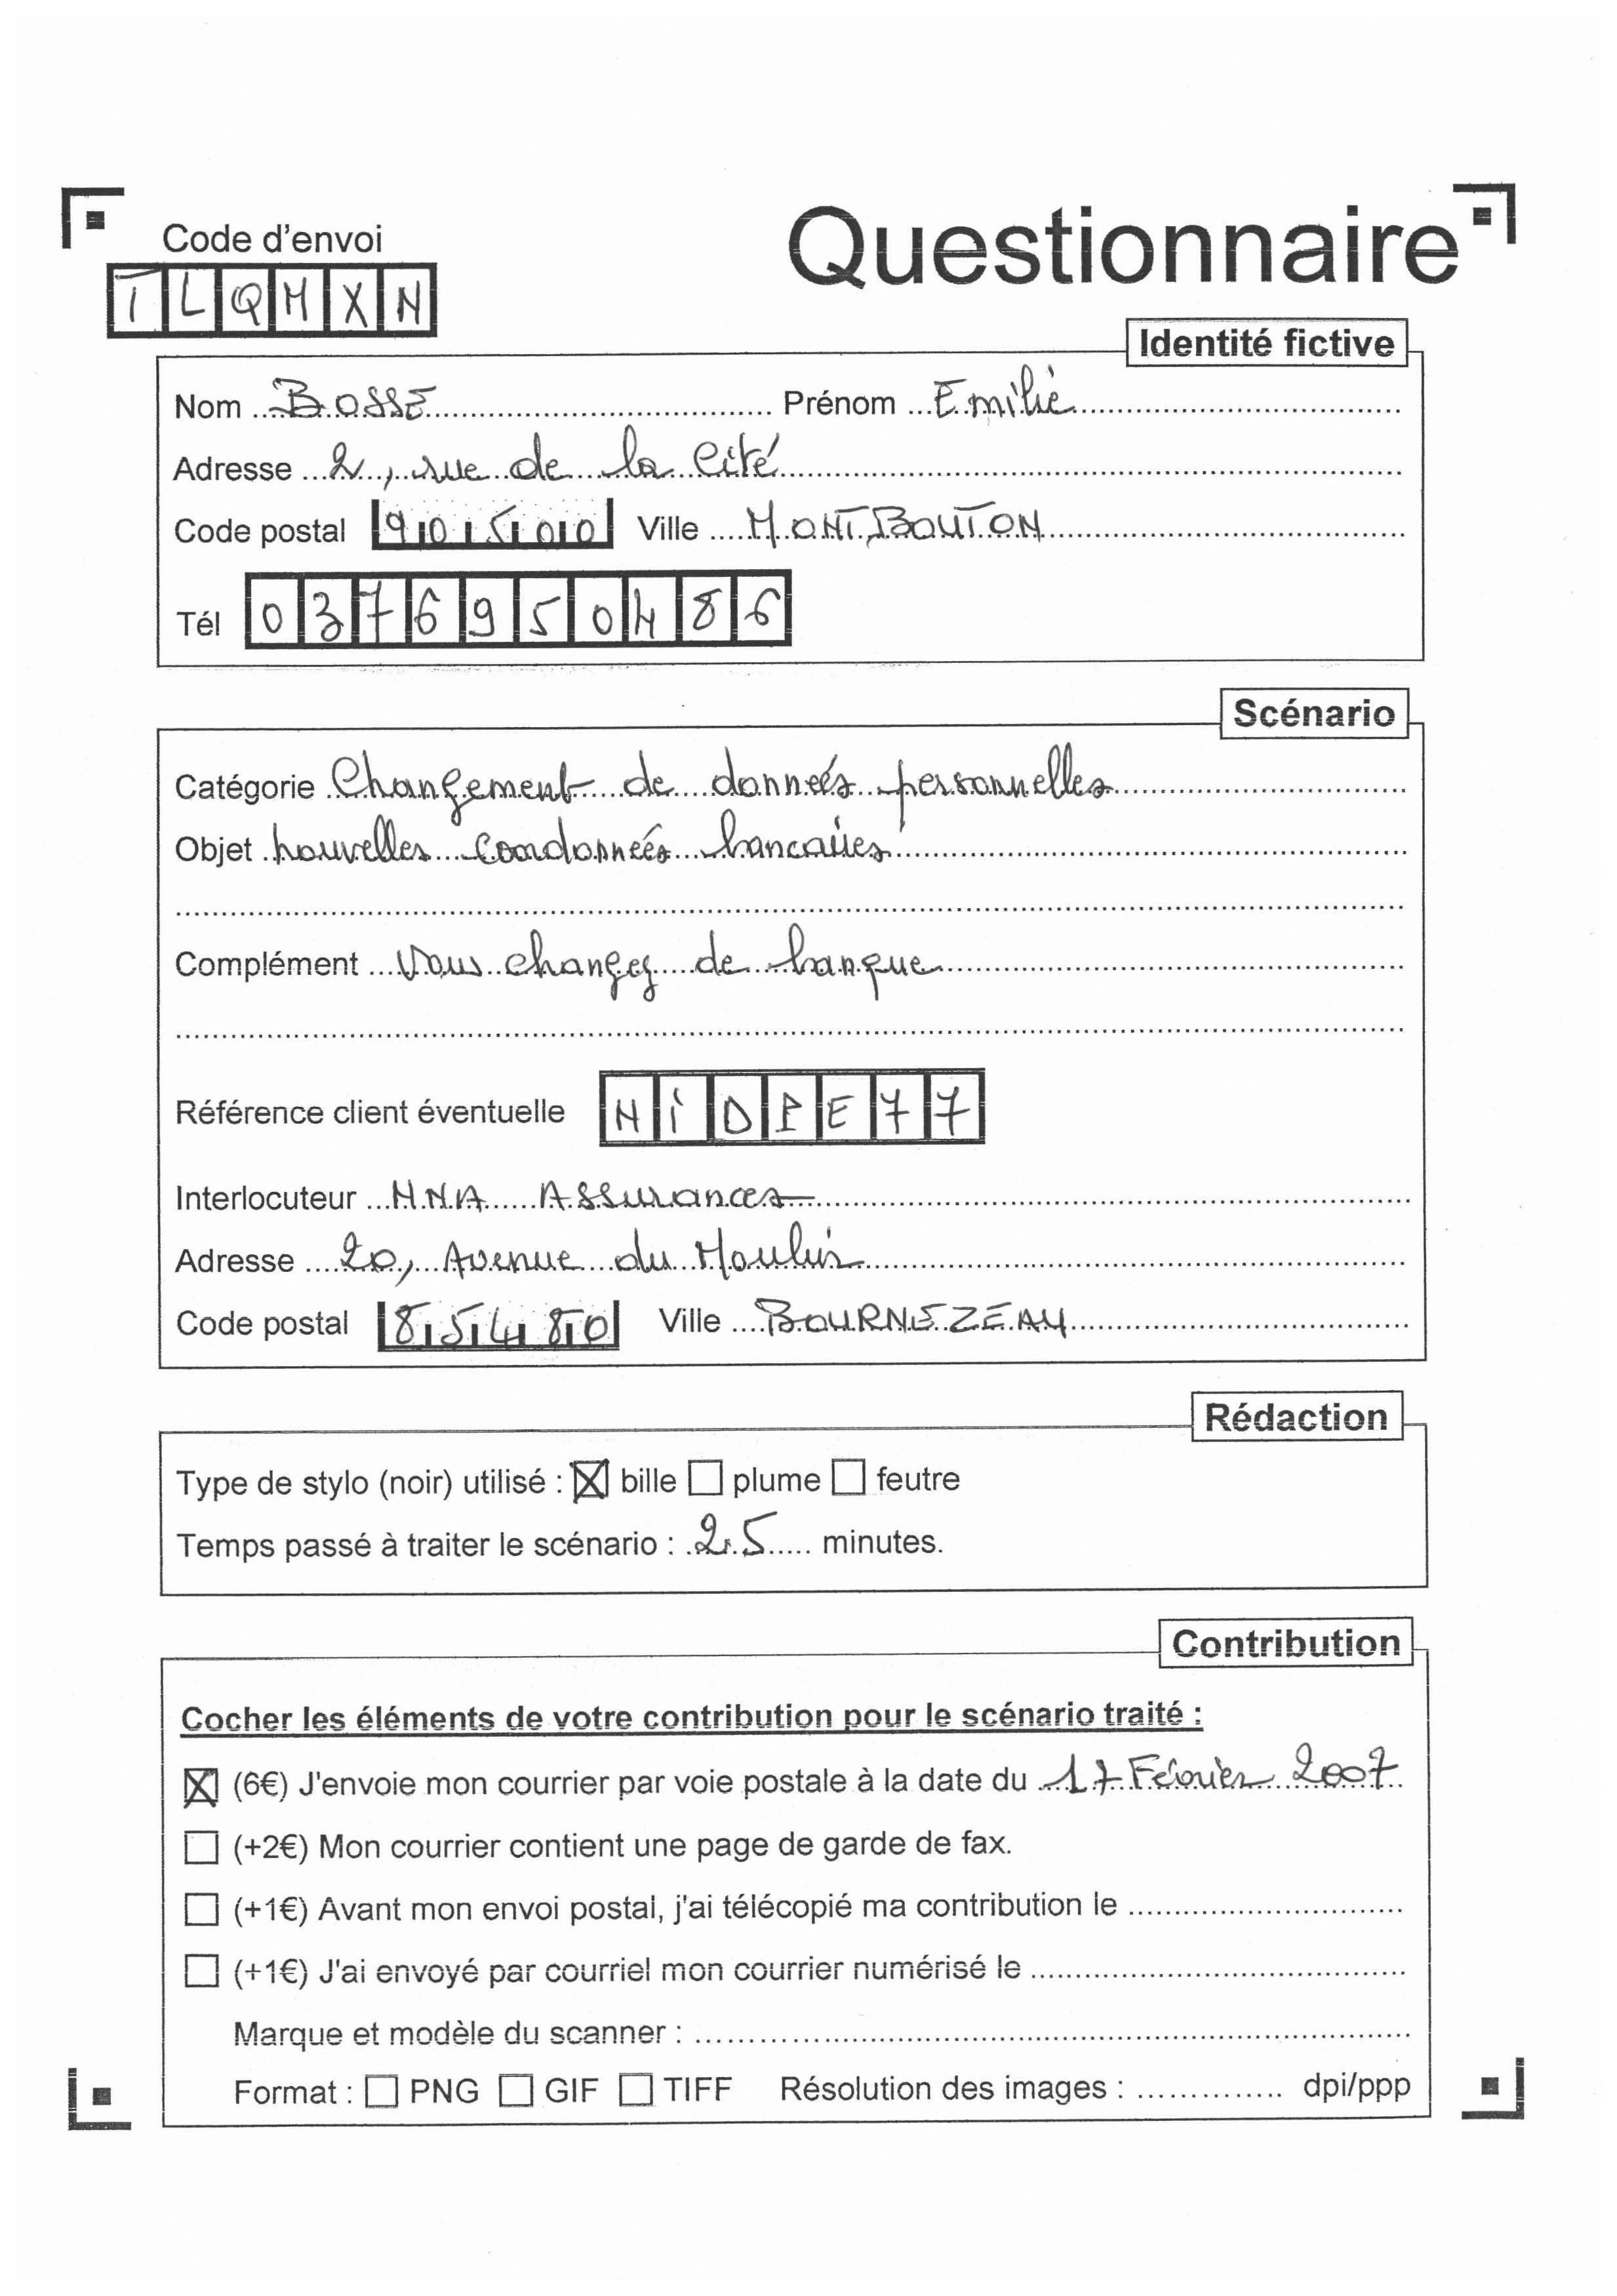 Code d'envoi
Questionnaire
TLQMXN
Identité fictive
Nom BOSSE Prénom Emilie
Adresse 2, rue de la Cité
Code postal 90500 Ville MONTBOUTON
Tél 0376950486
Scénario
Catégorie Changement de données personnelles
Objet nouvelles coordonnées bancaires
Complément Vous changez de banque
Référence client éventuelle NIDPE77
Interlocuteur MNA Assurances
Adresse 20, Avenue du Moulin
Code postal 85480 Ville BOURNEZEAU
Rédaction
Type de stylo (noir) utilisé : ☒ bille ☐ plume ☐ feutre
Temps passé à traiter le scénario : 25 minutes.
Contribution
Cocher les éléments de votre contribution pour le scénario traité :
☒ (6€) J'envoie mon courrier par voie postale à la date du 17 Février 2007
☐ (+2€) Mon courrier contient une page de garde de fax.
☐ (+1€) Avant mon envoi postal, j'ai télécopié ma contribution le
☐ (+1€) J'ai envoyé par courriel mon courrier numérisé le
Marque et modèle du scanner :
Format : ☐ PNG ☐ GIF ☐ TIFF Résolution des images : dpi/ppp